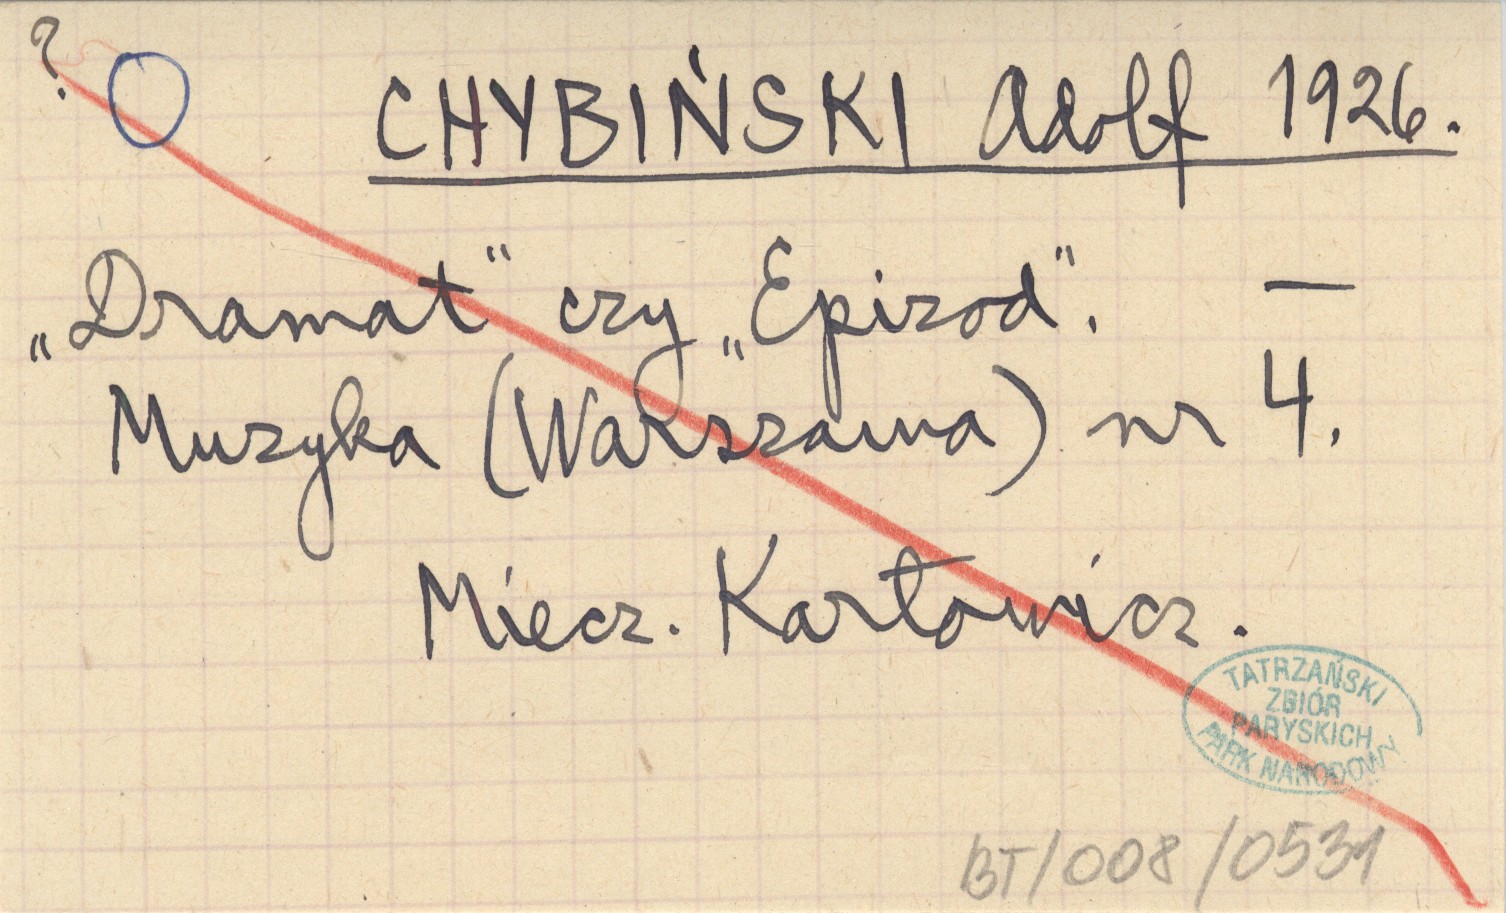 ?
CHYBIŃSKI Adolf 1926.
„Dramat“ czy „Epizod“. —
Muzyka (Warszawa) nr 4.
Miecz. Karłowicz.
TATRZAŃSKI
ZBIÓR
PARYSKICH
PARK NARODOWY
BT/008/0531